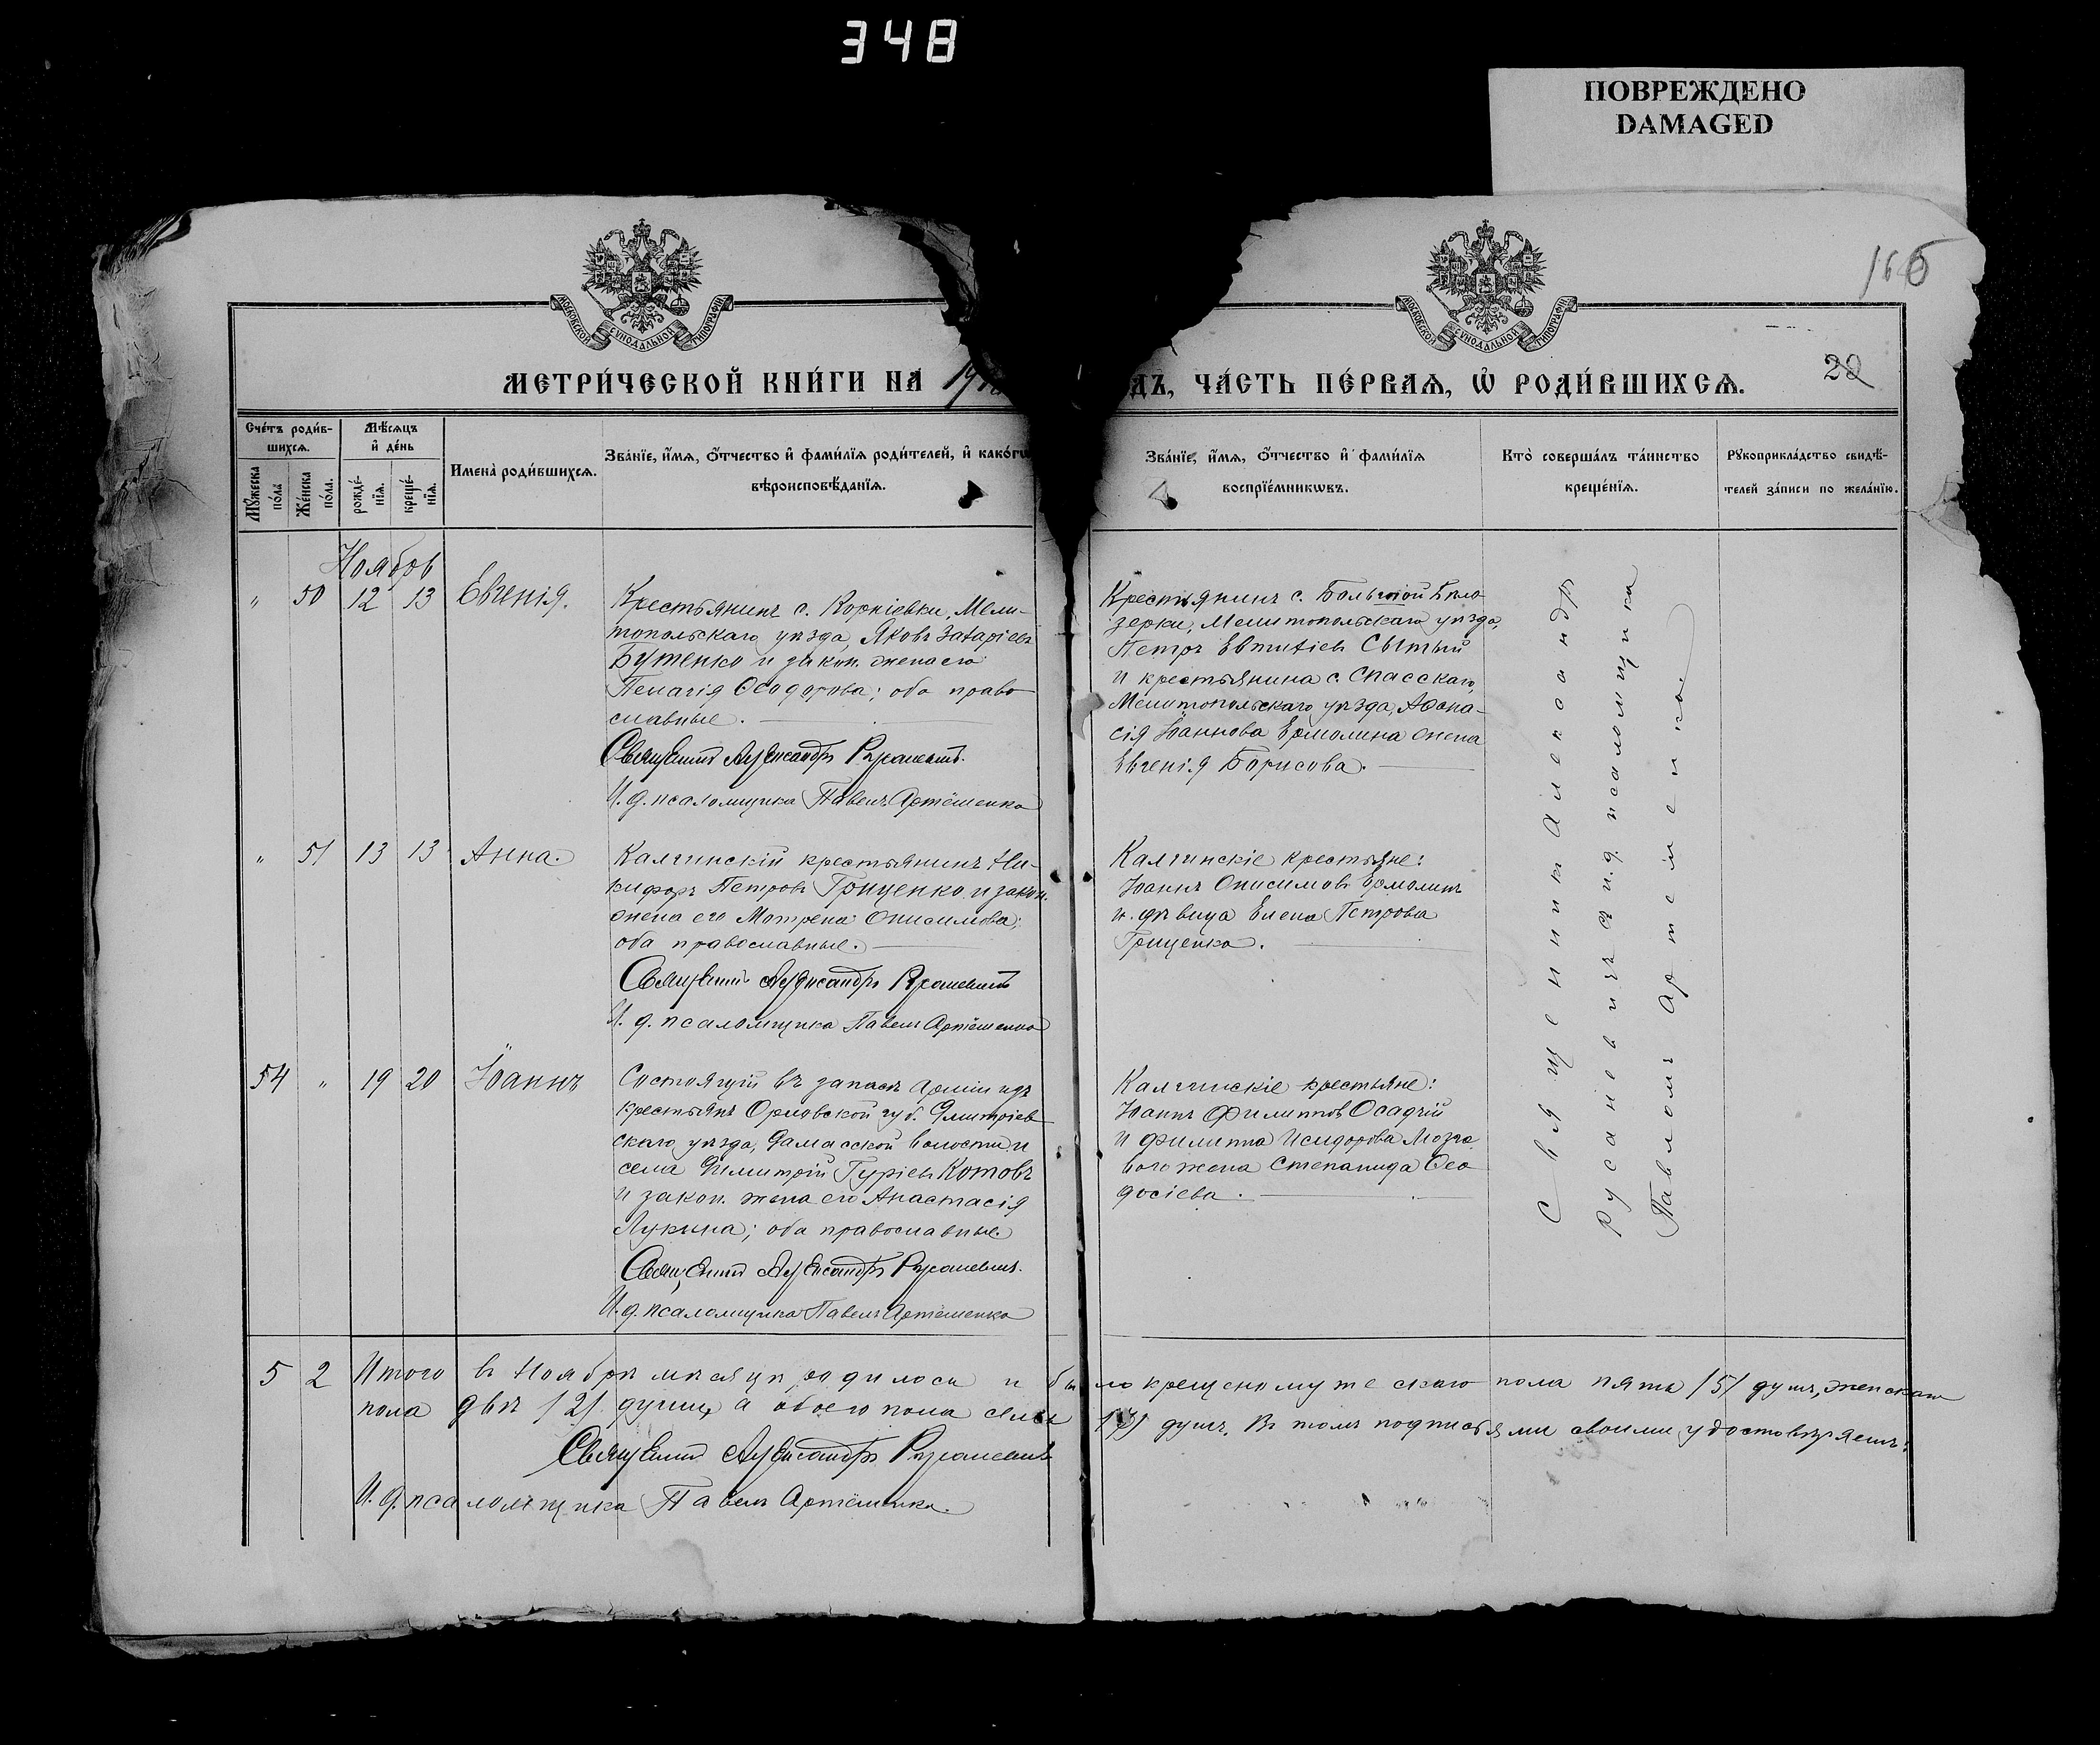 348
ПОВРЕЖДЕНО
DAMAGED
166
28
МОСКОВСКОЙ СѴНОДАЛЬНОЙ ТИПОГРАФІИ
МОСКОВСКОЙ СѴНОДАЛЬНОЙ ТИПОГРАФІИ
МЕТРИ́ЧЕСКОЙ КНИ́ГИ НА 191
ДЪ, ЧА́СТЬ ПЕ́РВАѦ, Ѡ҆ РОДИ́ВШИХСѦ.
Сче́тъ роди́в-
шихсѧ.
Мꙋ́жеска
по́ла
Же́нска
по́ла.
Мѣ́сѧцъ
и҆ де́нь
рожде́-
нїѧ.
креще́-
нїѧ.
Имена̀ роди́вшихсѧ.
Зва́нїе, и҆́мѧ, ѻ҆́тчество и҆ фами́лїѧ роди́телей, и҆ како́гѡ
вѣроисповѣ́данїѧ.
Зва́нїе, и҆́мѧ, ѻ҆́тчество и҆ фами́лїѧ
воспрїе́мникѡвъ.
Кто̀ соверша́лъ та́инство
креще́нїѧ.
Рꙋкоприкла́дство свидѣ́-
телей за́писи по жела́нїю.
Ноябрь
" 50 12 13 Евгенія.
Крестьянинъ с. Корніевки, Мели-
топольскаго уѣзда, Яковъ Захаріевъ
Бутенко и закон. жена его
Пелагія Ѳеодорова; оба право-
славные.
Священникъ Александръ Русаневичъ.
И. д. псаломщика Павелъ Артёменко
Крестьянинъ с. Большой Бѣло-
зерки, Мелитопольскаго уѣзда,
Петръ Евтихіевъ Сытый
и крестьянина с. Спасскаго,
Мелитопольскаго уѣзда, Аѳана-
сія Іоаннова Ермолина жена
Евгенія Борисова.
" 51 13 13 Анна.
Калгинскій крестьянинъ Ни-
кифоръ Петровъ Гриценко и закон.
жена его Мотрена Онисимова;
оба православные.
Священникъ Александръ Русаневичъ
И. д. псаломщика Павелъ Артёменко
Калгинскіе крестьяне:
Іоаннъ Онисимовъ Ермолинъ
и дѣвица Елена Петрова
Гриценко.
54 " 19 20 Іоаннъ
Состоящій въ запасѣ арміи изъ
крестьянъ Орловской губ. Дмитріев-
скаго уѣзда, волости и
села Димитрій Гуріевъ Котовъ
и закон. жена его Анастасія
Лукина; оба православные.
Священникъ Александръ Русаневичъ.
И. д. псаломщика Павелъ Артёменко
Калгинскіе крестьяне:
Іоаннъ Филипповъ Осадчій
и Филиппа Исидорова Мозго-
вого жена Степанида Ѳео-
досіева.
Священникъ Александръ
Русаневичъ и д. псаломщика
Павломъ Артеменко.
5 2 Итого въ Ноябрѣ мѣсяцѣ родилось и было крещено мужескаго пола пять /5/ душъ, женскаго
пола двѣ /2/ души, а обоего пола семь /7/ душъ. Въ томъ подписями своими удостовѣряемъ:
Священникъ Александръ Русаневичъ
И. д. псаломщика Павелъ Артёменко.